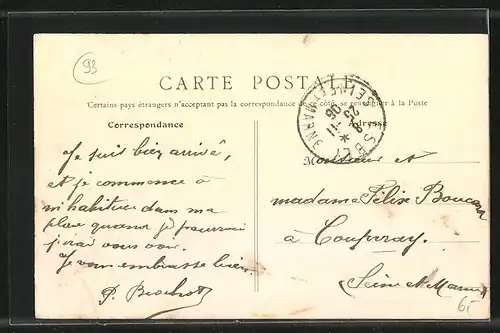 93
CARTE POSTALE
Certains pays étrangers n'acceptent pas la correspondance de ce côté, se renseigner à la Poste
Correspondance
Adresse
SEINE-ET-MARNE
8
25 -11
06
Je suis bien arrivé,
et je commence à
m'habituer dans ma
place quand je pourrai
j'irai vous voir.
Je vous embrasse bien.
P. Brochot
Monsieur et
madame Félix Boucon
à Coupvray.
Seine et Marne
6.